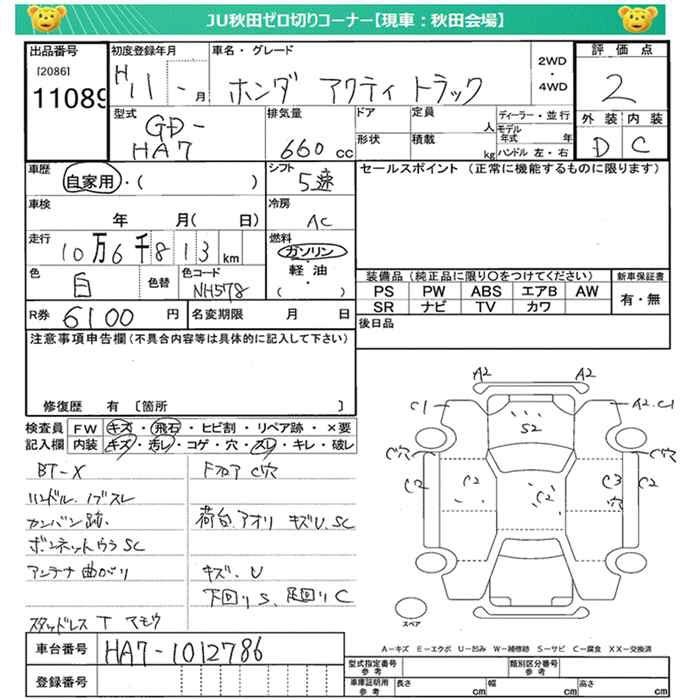 JU秋田ゼロ切りコーナー【現車：秋田会場】
出品番号 初度登録年月 車名・グレード 2WD・4WD 評価点
[2086]
11089
H11 - 月
ホンダ アクティ トラック
2
型式 GD-HA7
排気量 660 cc
ドア 定員 人
形状 積載 kg
ディーラー・並行
モデル年式 年
ハンドル 左・右
外装 内装
D C
車歴 自家用・( )
シフト 5速
セールスポイント (正常に機能するものに限ります)
車検 年 月( 日)
冷房 AC
走行 10万6千813 km
燃料 ガソリン・軽油・( )
色 白 色替 色コード NH578
装備品(純正品に限り○をつけてください) 新車保証書
PS PW ABS エアB AW 有・無
SR ナビ TV カワ
R券 6100 円 名変期限 月 日
後日品
注意事項申告欄(不具合内容等は具体的に記入して下さい)
修復歴 有 〔箇所 〕
検査員 FW キズ・飛石・ヒビ割・リペア跡・×要
記入欄 内装 キズ・汚レ・コゲ・穴・スレ・キレ・破レ
BT-X Fフロア C穴
ハンドル、ノブスレ
カンバン跡、 荷台、アオリ キズU、SC
ボンネットウラ SC
アンテナ曲がり キズ、U
下回りS、足回りC
スタッドレス T
A2 A2
C1 S2 A2.C1
C穴 C穴
C2 C2 C2 C3穴 C2
スペア
A-キズ E-エクボ U-凹み W-補修跡 S-サビ C-腐食 XX-交換済
車台番号 HA7-1012786
登録番号
型式指定番号 参考 類別区分番号 参考
車庫証明用 参考 長さ cm 幅 cm 高さ cm